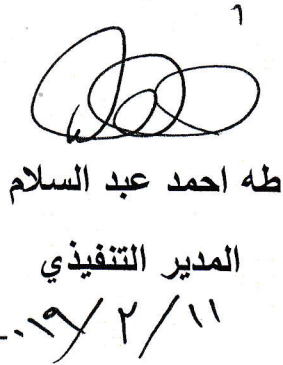 ٦
طه احمد عبد السلام
المدير التنفيذي
٢٠١٩/٢/١١